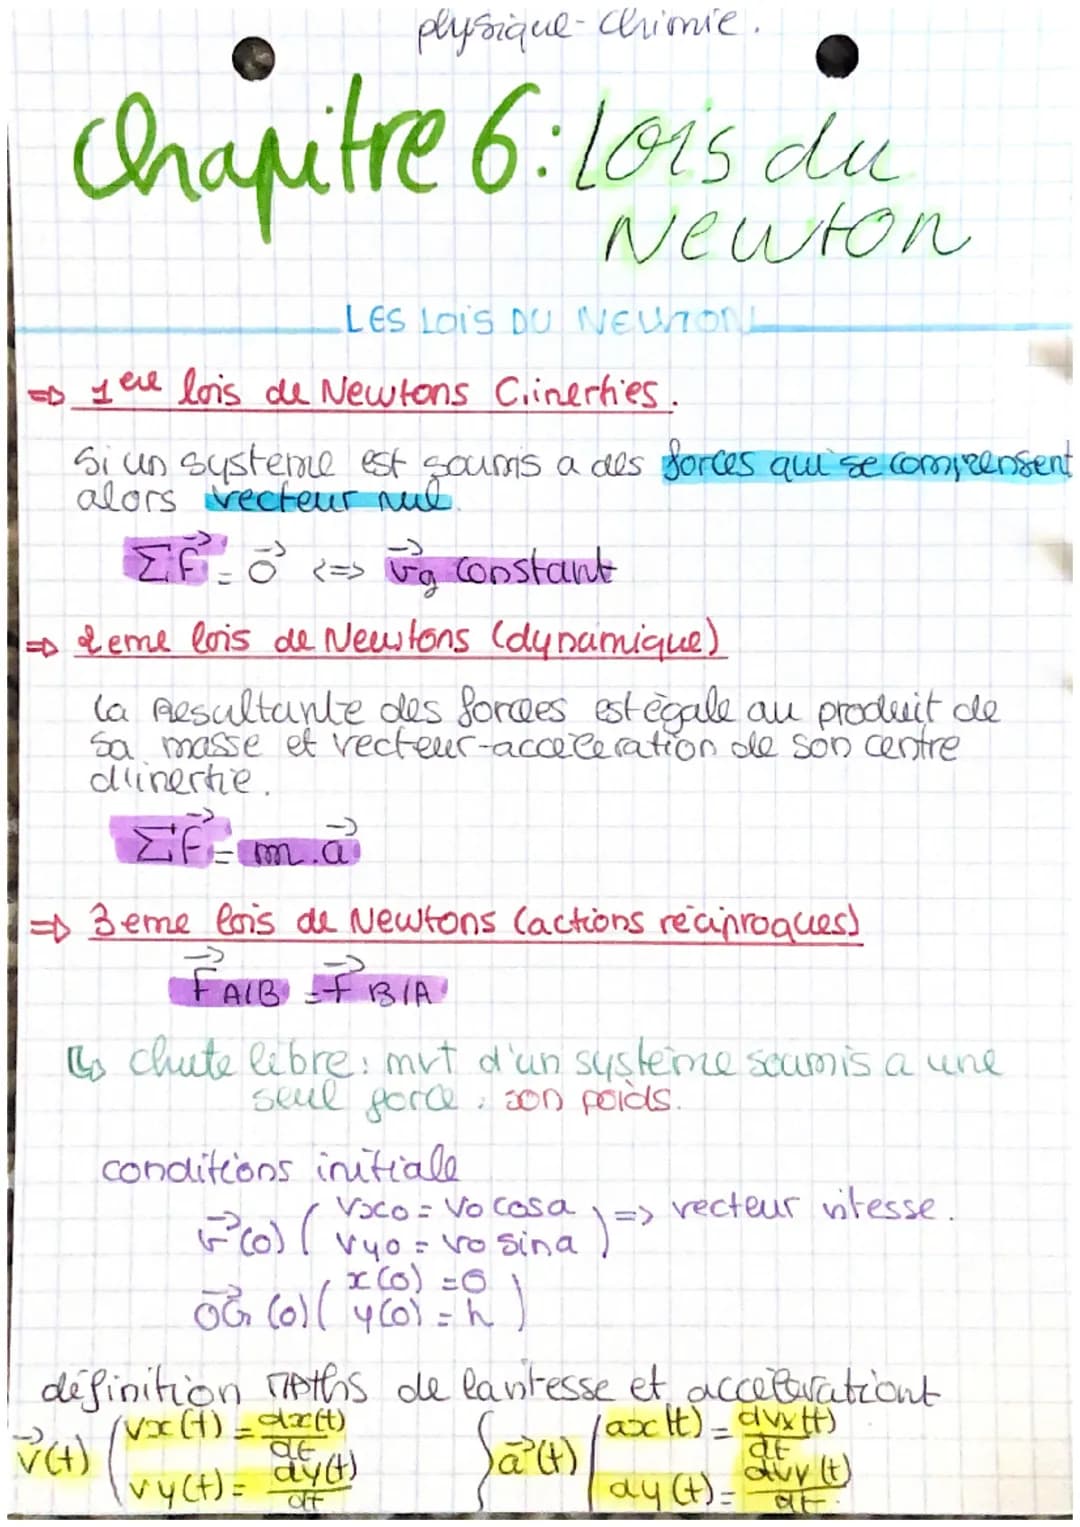 physique-chimie.
Chapitre 6: Lois du
Newton
LES LOIS DU NEWTON
⇒ 1ere lois de Newtons C.inerties.
Si un systeme est soumis a des forces qui se compensent
alors vecteur nul.
ΣF⃗ = 0⃗ <=> v⃗g constant
⇒ 2eme lois de Newtons (dynamique)
la Resultante des forces est égale au produit de
sa masse et vecteur-acceleration de son centre
d'inertie.
ΣF⃗ = m.a⃗
⇒ 3eme lois de Newtons (actions réciproques)
F⃗ A/B = F⃗ B/A
↳ chute libre: mvt d'un système soumis a une
seul force : son poids.
conditions initiale
v⃗(0) ( vx0 = v0 cosa ) => vecteur vitesse.
vy0 = v0 sina
OG⃗ (0) ( x(0) = 0
y(0) = h )
définition MATHS de la vitesse et accelerationt
v⃗(t) ( vx(t) = dx(t)/dt { a⃗(t) ( ax(t) = dvx(t)/dt
vy(t) = dy(t)/dt ay(t) = dvy(t)/dt